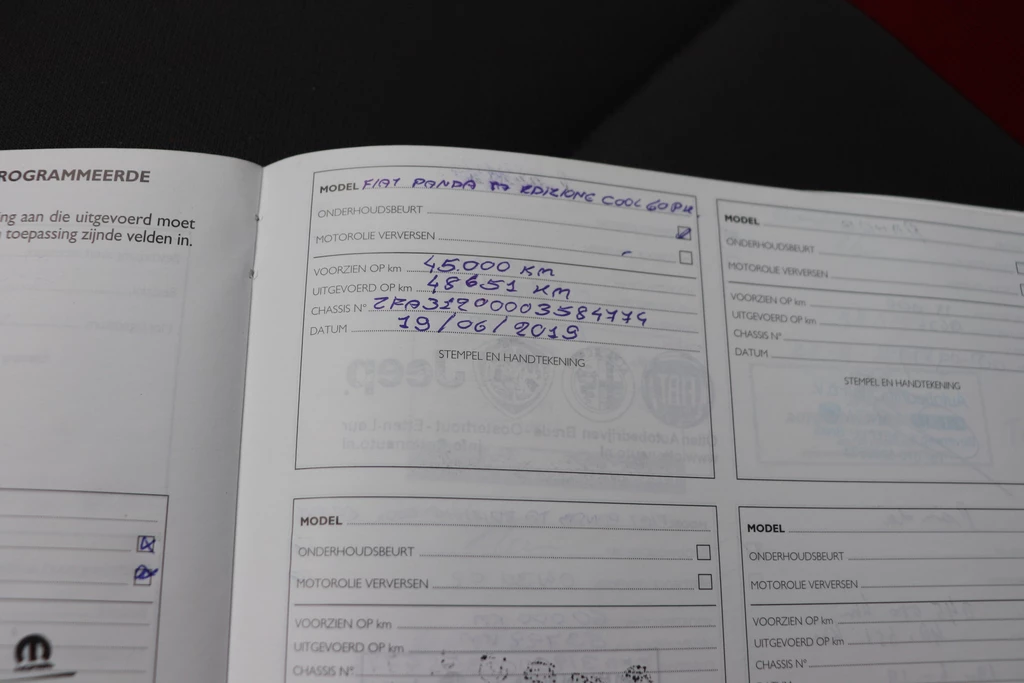 ROGRAMMEERDE
ng aan die uitgevoerd moet
toepassing zijnde velden in.
MODEL FIAT PANDA TA EDIZIONE COOL 60PK
ONDERHOUDSBEURT
MOTOROLIE VERVERSEN
VOORZIEN OP km 45.000 KM
UITGEVOERD OP km 48651 KM
CHASSIS N° ZFA31200003584774
DATUM 19/06/2019
STEMPEL EN HANDTEKENING
MODEL
ONDERHOUDSBEURT
MOTOROLIE VERVERSEN
VOORZIEN OP km
UITGEVOERD OP km
CHASSIS N°
DATUM
STEMPEL EN HANDTEKENING
MODEL
ONDERHOUDSBEURT
MOTOROLIE VERVERSEN
VOORZIEN OP km
UITGEVOERD OP km
CHASSIS N°
MODEL
ONDERHOUDSBEURT
MOTOROLIE VERVERSEN
VOORZIEN OP km
UITGEVOERD OP km
CHASSIS N°